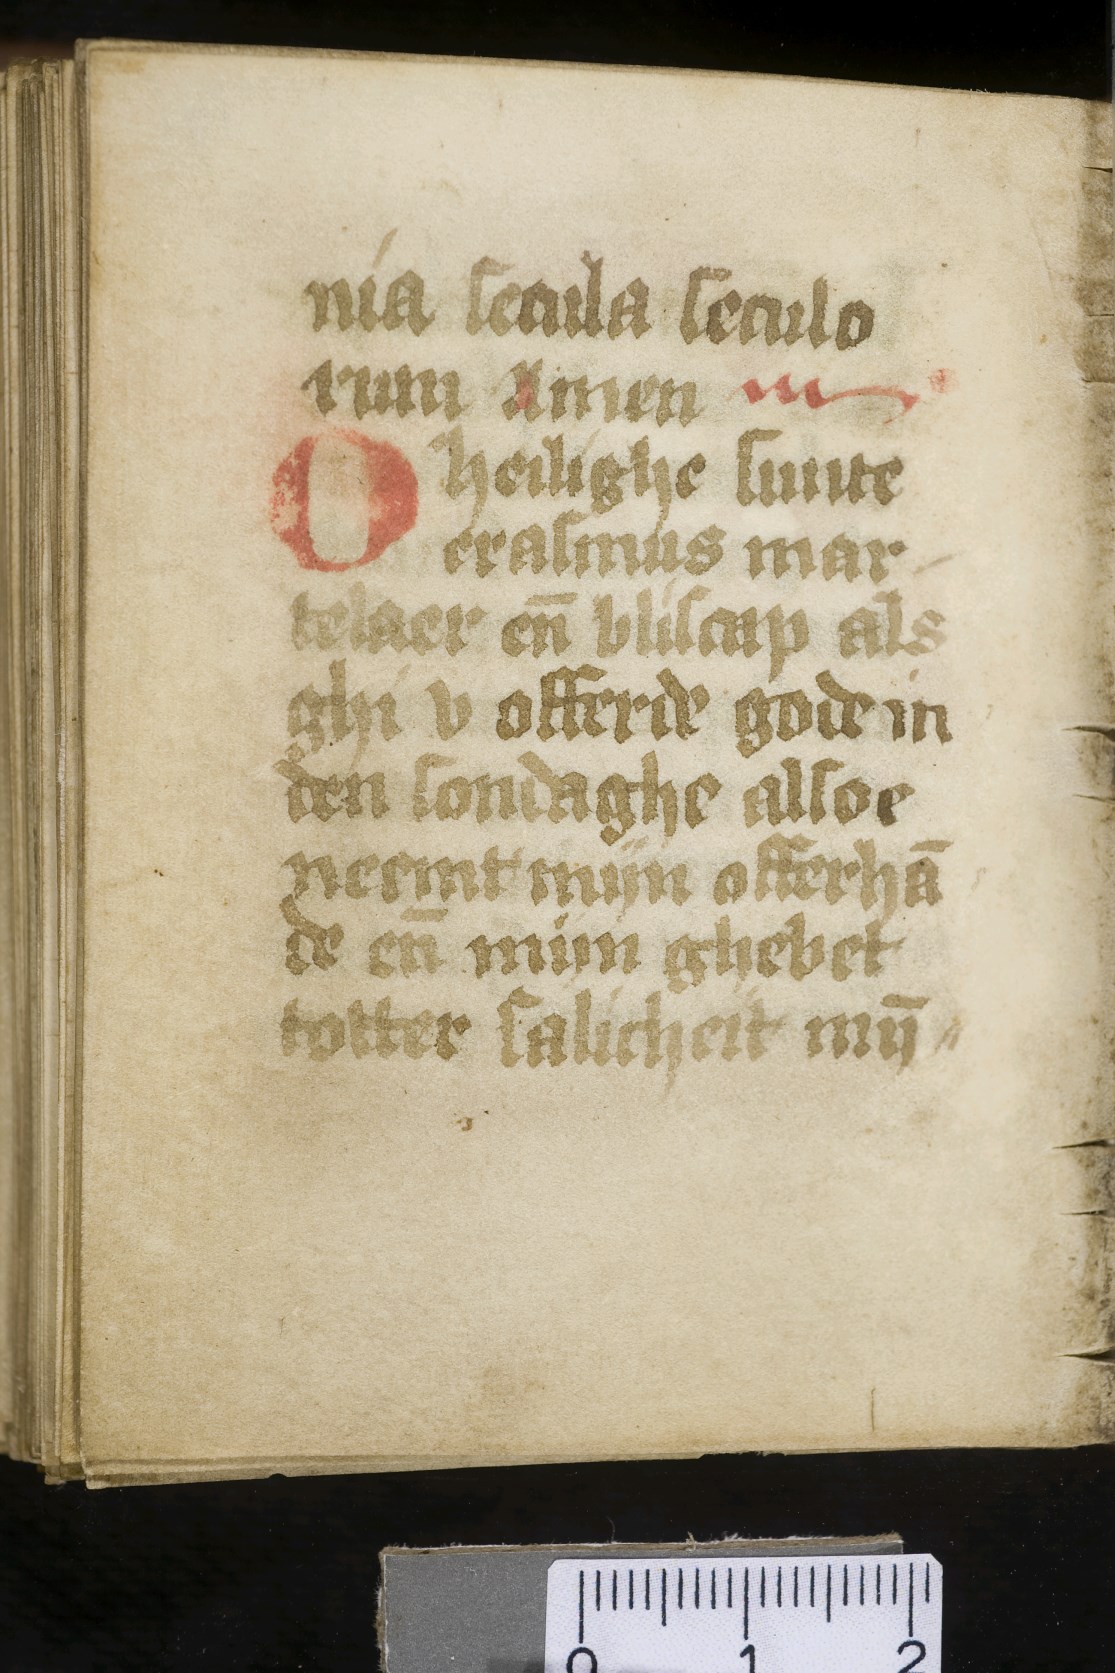 nia secula seculo
rum Amen
O heilighe sinte
erasmus mar
telaer en̄ bliscap als
ghi v offerde gode in
den sondaghe alsoe
neemt mijn offerhā
de en̄ mijn ghebet
totter salicheit mij̄
0 1 2